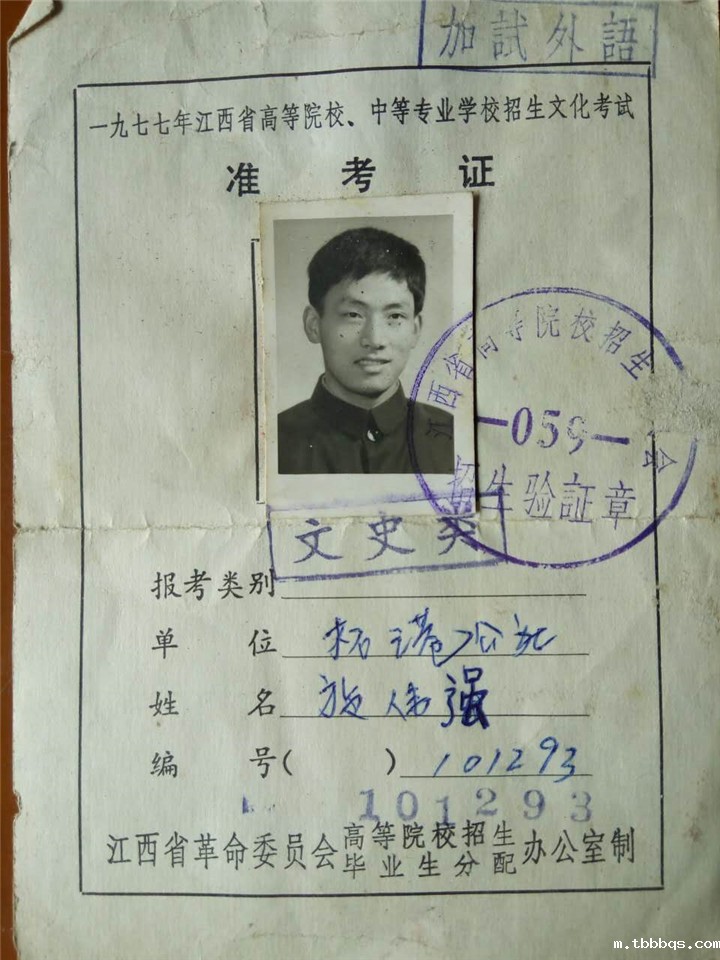 加試外語
一九七七年江西省高等院校、中等专业学校招生文化考试
准考证
江西省高等院校招生 会
—059—
招生验証章
文史类
报考类别
单位 柘港公社
姓名 施伟强
编号( ) 101293
101293
江西省革命委员会高等院校招生毕业生分配办公室制
m.tbbbqs.com